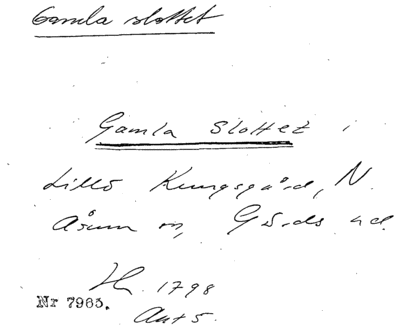 Gamla slottet
Gamla Slottet i
Lillö Kungsgård, N.
Åsum sn, Gärds hd.
H. 1798
Nr 7965.
Ant 5.